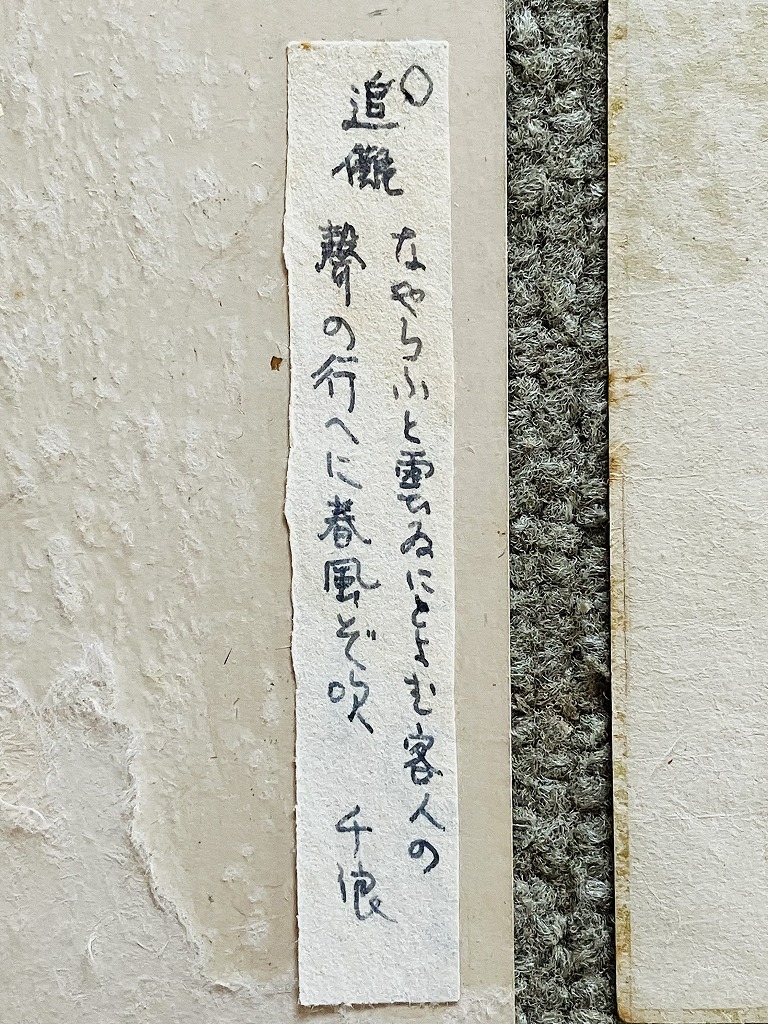 ○
追儺
なやらふと雲ゐにとよむ客人の
聲の行へに春風ぞ吹